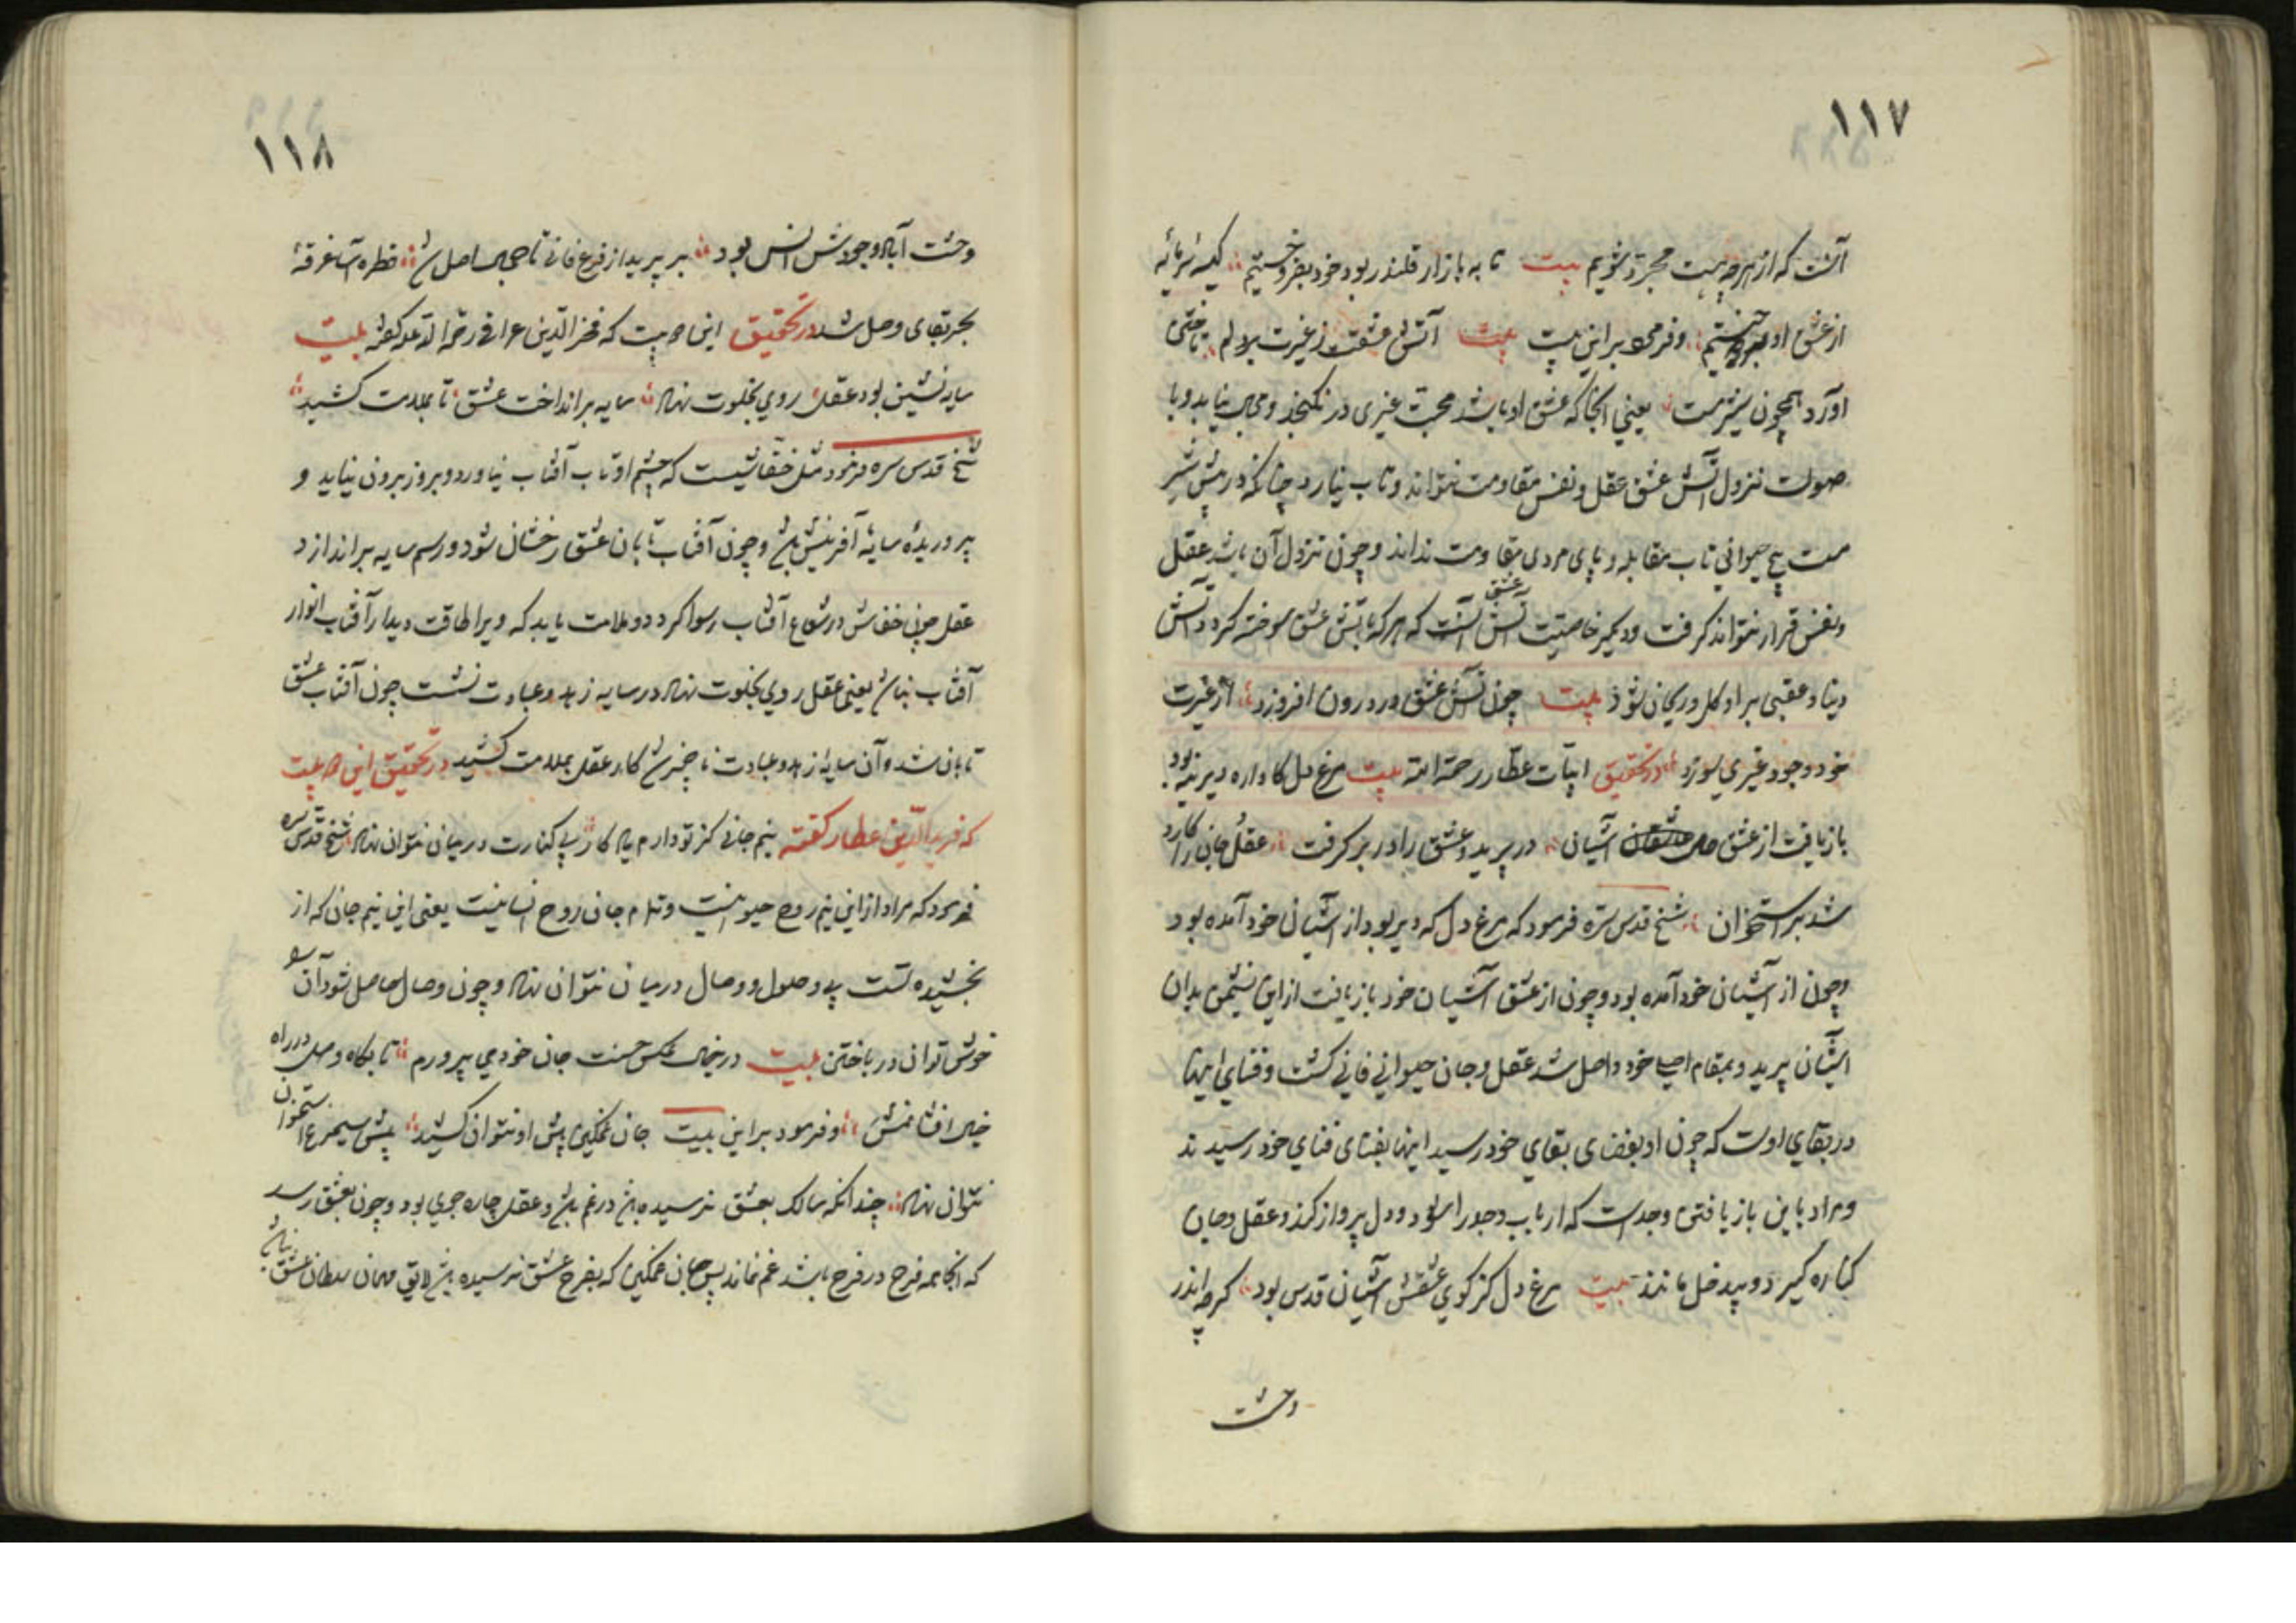 ۱۱۷
آنست که از هرچه هست مجرد شویم بیت تا به بازار قلندر بود خود بفروختیم کیسه سرمایه
از عشق او بردوختیم وفرمود براین بیت بیت آتش عشقت ز غیرت بر دلم تاختن
اورد همچون شیر مست یعنی انجا که عشق او باشد محبت غیری در نکنجد و مجال نیابد و با
صولت نزول آتش عشق عقل و نفس مقاومت نتواند و تاب نیارد چنانکه در پیش شیر
مست هیچ حیوانی تاب مقابله و پای مردی مقاومت نداند و چون نزول آن باشد عقل
ونفس قرار نتواند کرفت و دیکر خاصیت آتش عشق آنست که هرکه بآتش عشق سوخته کردد آتش
دنیا و عقبی براو کل و ریحان شود بیت چون آتش عشق او درون افروزد از غیرت
خود وجود غیری سوزد در تحقیق ابیات عطار رحمة الله بیت مرغ دل کاواره دیرینه بود
باز یافت از عشق آشیان در پرید و عشق را در بر کرفت عقل و جان را کارد
شد بر استخوان شیخ قدس سره فرمود که مرغ دل که دیر بود از آشیان خود آمده بود
وچون از آشیان خود آمده بود و چون از عشق آشیان خود باز یافت از این نشیمن بدان
آشیان پرید و بمقام اصلی خود واصل شد عقل و جان حیوانی فانی کشت و فنای اینها
در بقای اوست که چون او بفضای بقای خود رسید اینها بفنای فنای خود رسیدند
ومراد باین باز یافتن وجد است که ارباب وجد را بود و دل پرواز کند و عقل و جان
کناره کیرد و بیدخل ماند بیت مرغ دل کز کوی عشقش آشیان قدس بود کرچه اندر
وحشت
۱۱۸
وحشت آباد وجودش انس بود بر پرید از فرع فانی تا بجای اصل شد قطره آسا غرقه
بحر بقای وصل شد در تحقیق این بیت که فخر الدین عراقی رحمة الله علیه کفته بیت
سایه نشین بود عقل روی بخلوت نهاد سایه برانداخت عشق تا بملامت کشید
شیخ قدس سره فرمود مثل خفاشیست که چشم او تاب آفتاب نیاورد و بروز برون نیاید و
پروریده سایه آفرینش باشد و چون آفتاب تابان عشق رخشان شود و رسم سایه براندازد
عقل چون خفاش در شعاع آفتاب رسوا کردد و ملامت یابد که ویرا طاقت دیدار آفتاب انوار
آفتاب نباشد یعنی عقل روی بخلوت نهاد در سایه زهد و عبادت نشست چون آفتاب عشق
تابان شد و آن سایه زهد و عبادت ناچیز شد کار عقل بملامت کشید در تحقیق این بیت
که فرید الدین عطار کفته نیم جانی کز تو دارم یادکار بی کنارت در میان نتوان نهاد شیخ قدس سره
فرمود که مراد از این نیم روح حیوانیست و تمام جان روح انسانیت یعنی این نیم جان که از
بخشیده تست بی وصول و وصال در میان نتوان نهاد و چون وصال حاصل شود آن
خوش توان در باختن بیت در خیال عکس حسنت جان خود می پرورم تا بکاه وصل در راه
خیال افشانمش وفرمود براین بیت جان غمکین پیش او نتوان کشید پیش سیمرغ استخوان
نتوان نهاد چندانکه سالک بعشق نرسیده باشد در غم باشد و عقل چاره جوی بود و چون بعشق رسد
که انجا همه فرح در فرح باشد غم نماند پس جان غمکین که بفرح عشق نرسیده باشد لایق مهمان سلطان عشق نباشد